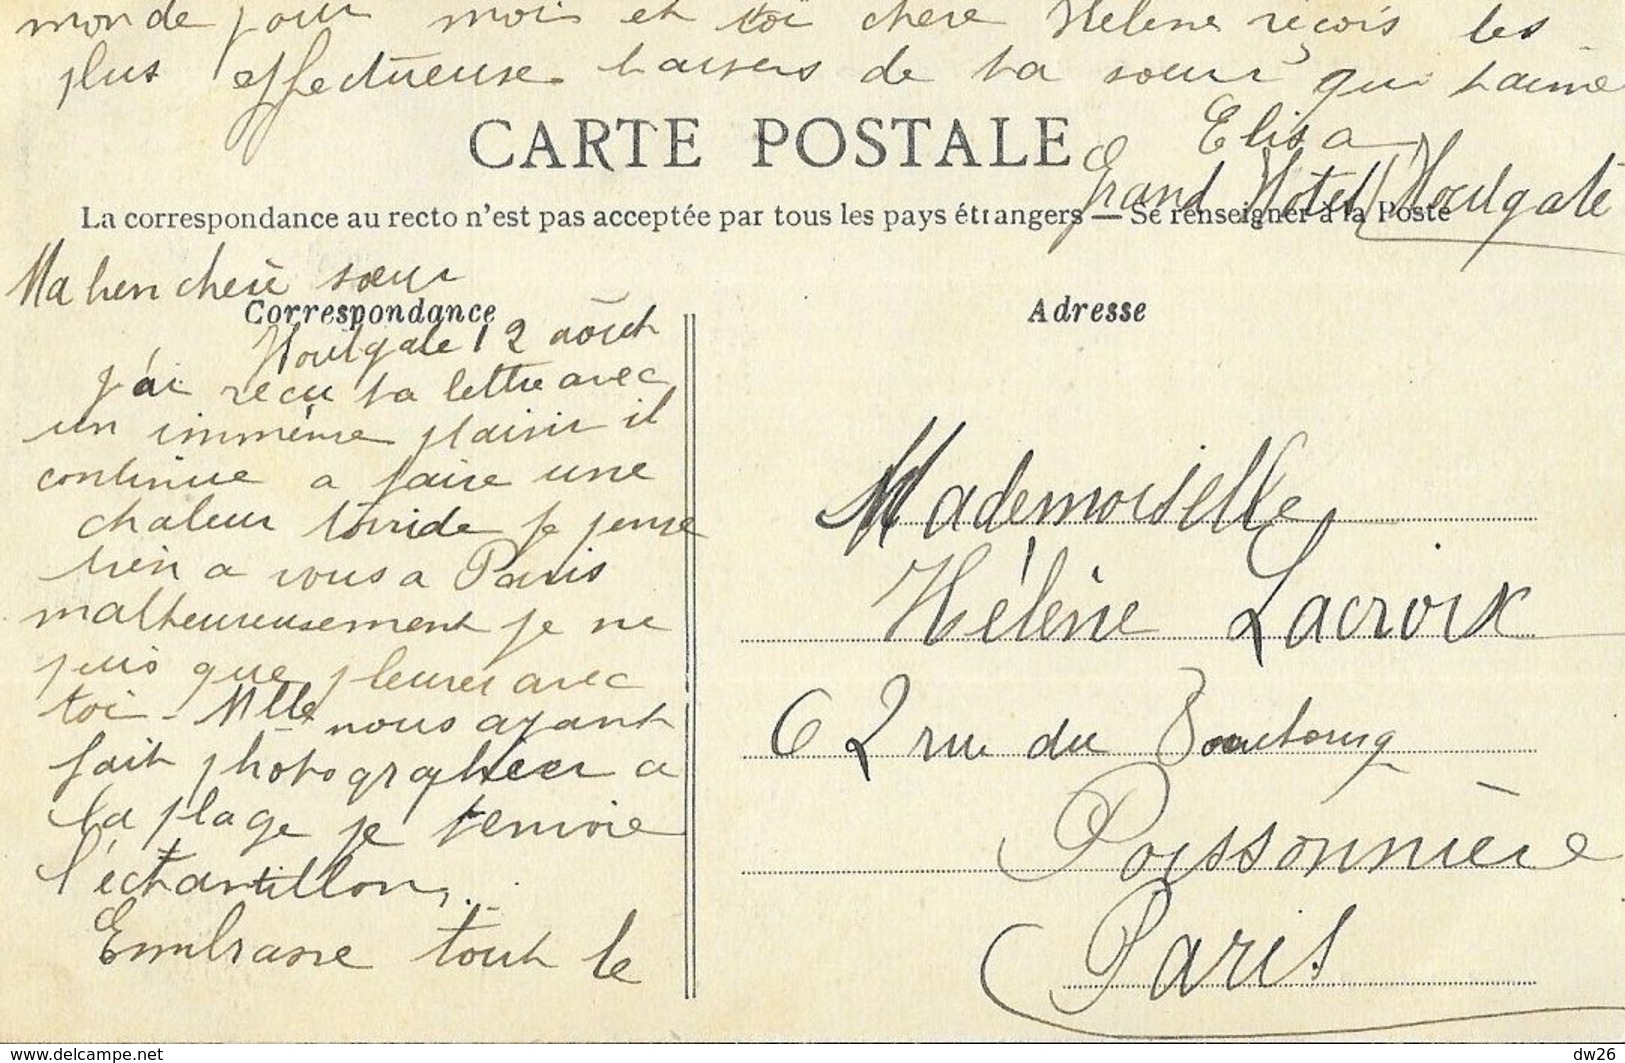 monde pour moi et toi chère Hélène reçois les
plus affectueuse baisers de ta sœur qui t'aime
Elisa
Grand Hotel Houlgate
CARTE POSTALE
La correspondance au recto n'est pas acceptée par tous les pays étrangers — Se renseigner à la Poste
Ma bien chère sœur
Correspondance
Houlgate 12 août
j'ai reçu ta lettre avec
un immense plaisir il
continue a faire une
chaleur torride je pense
bien a vous a Paris
malheureusement je ne
puis que pleurer avec
toi - Mlle nous ayant
fait photographier a
la plage je t'envoie
l'échantillon...
Embrasse tout le
Adresse
Mademoiselle
Hélène Lacroix
62 rue du Faubourg
Poissonnière
Paris
www.delcampe.net
dw26